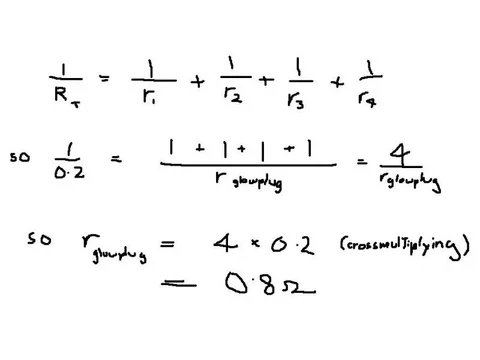 1/R_T = 1/r_1 + 1/r_2 + 1/r_3 + 1/r_4
so 1/0.2 = (1 + 1 + 1 + 1)/r_glowplug = 4/r_glowplug
so r_glowplug = 4 × 0.2 (crossmultiplying)
= 0.8Ω